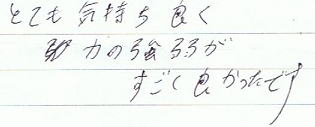 とても気持ち良く
力の強弱が
すごく良かったです